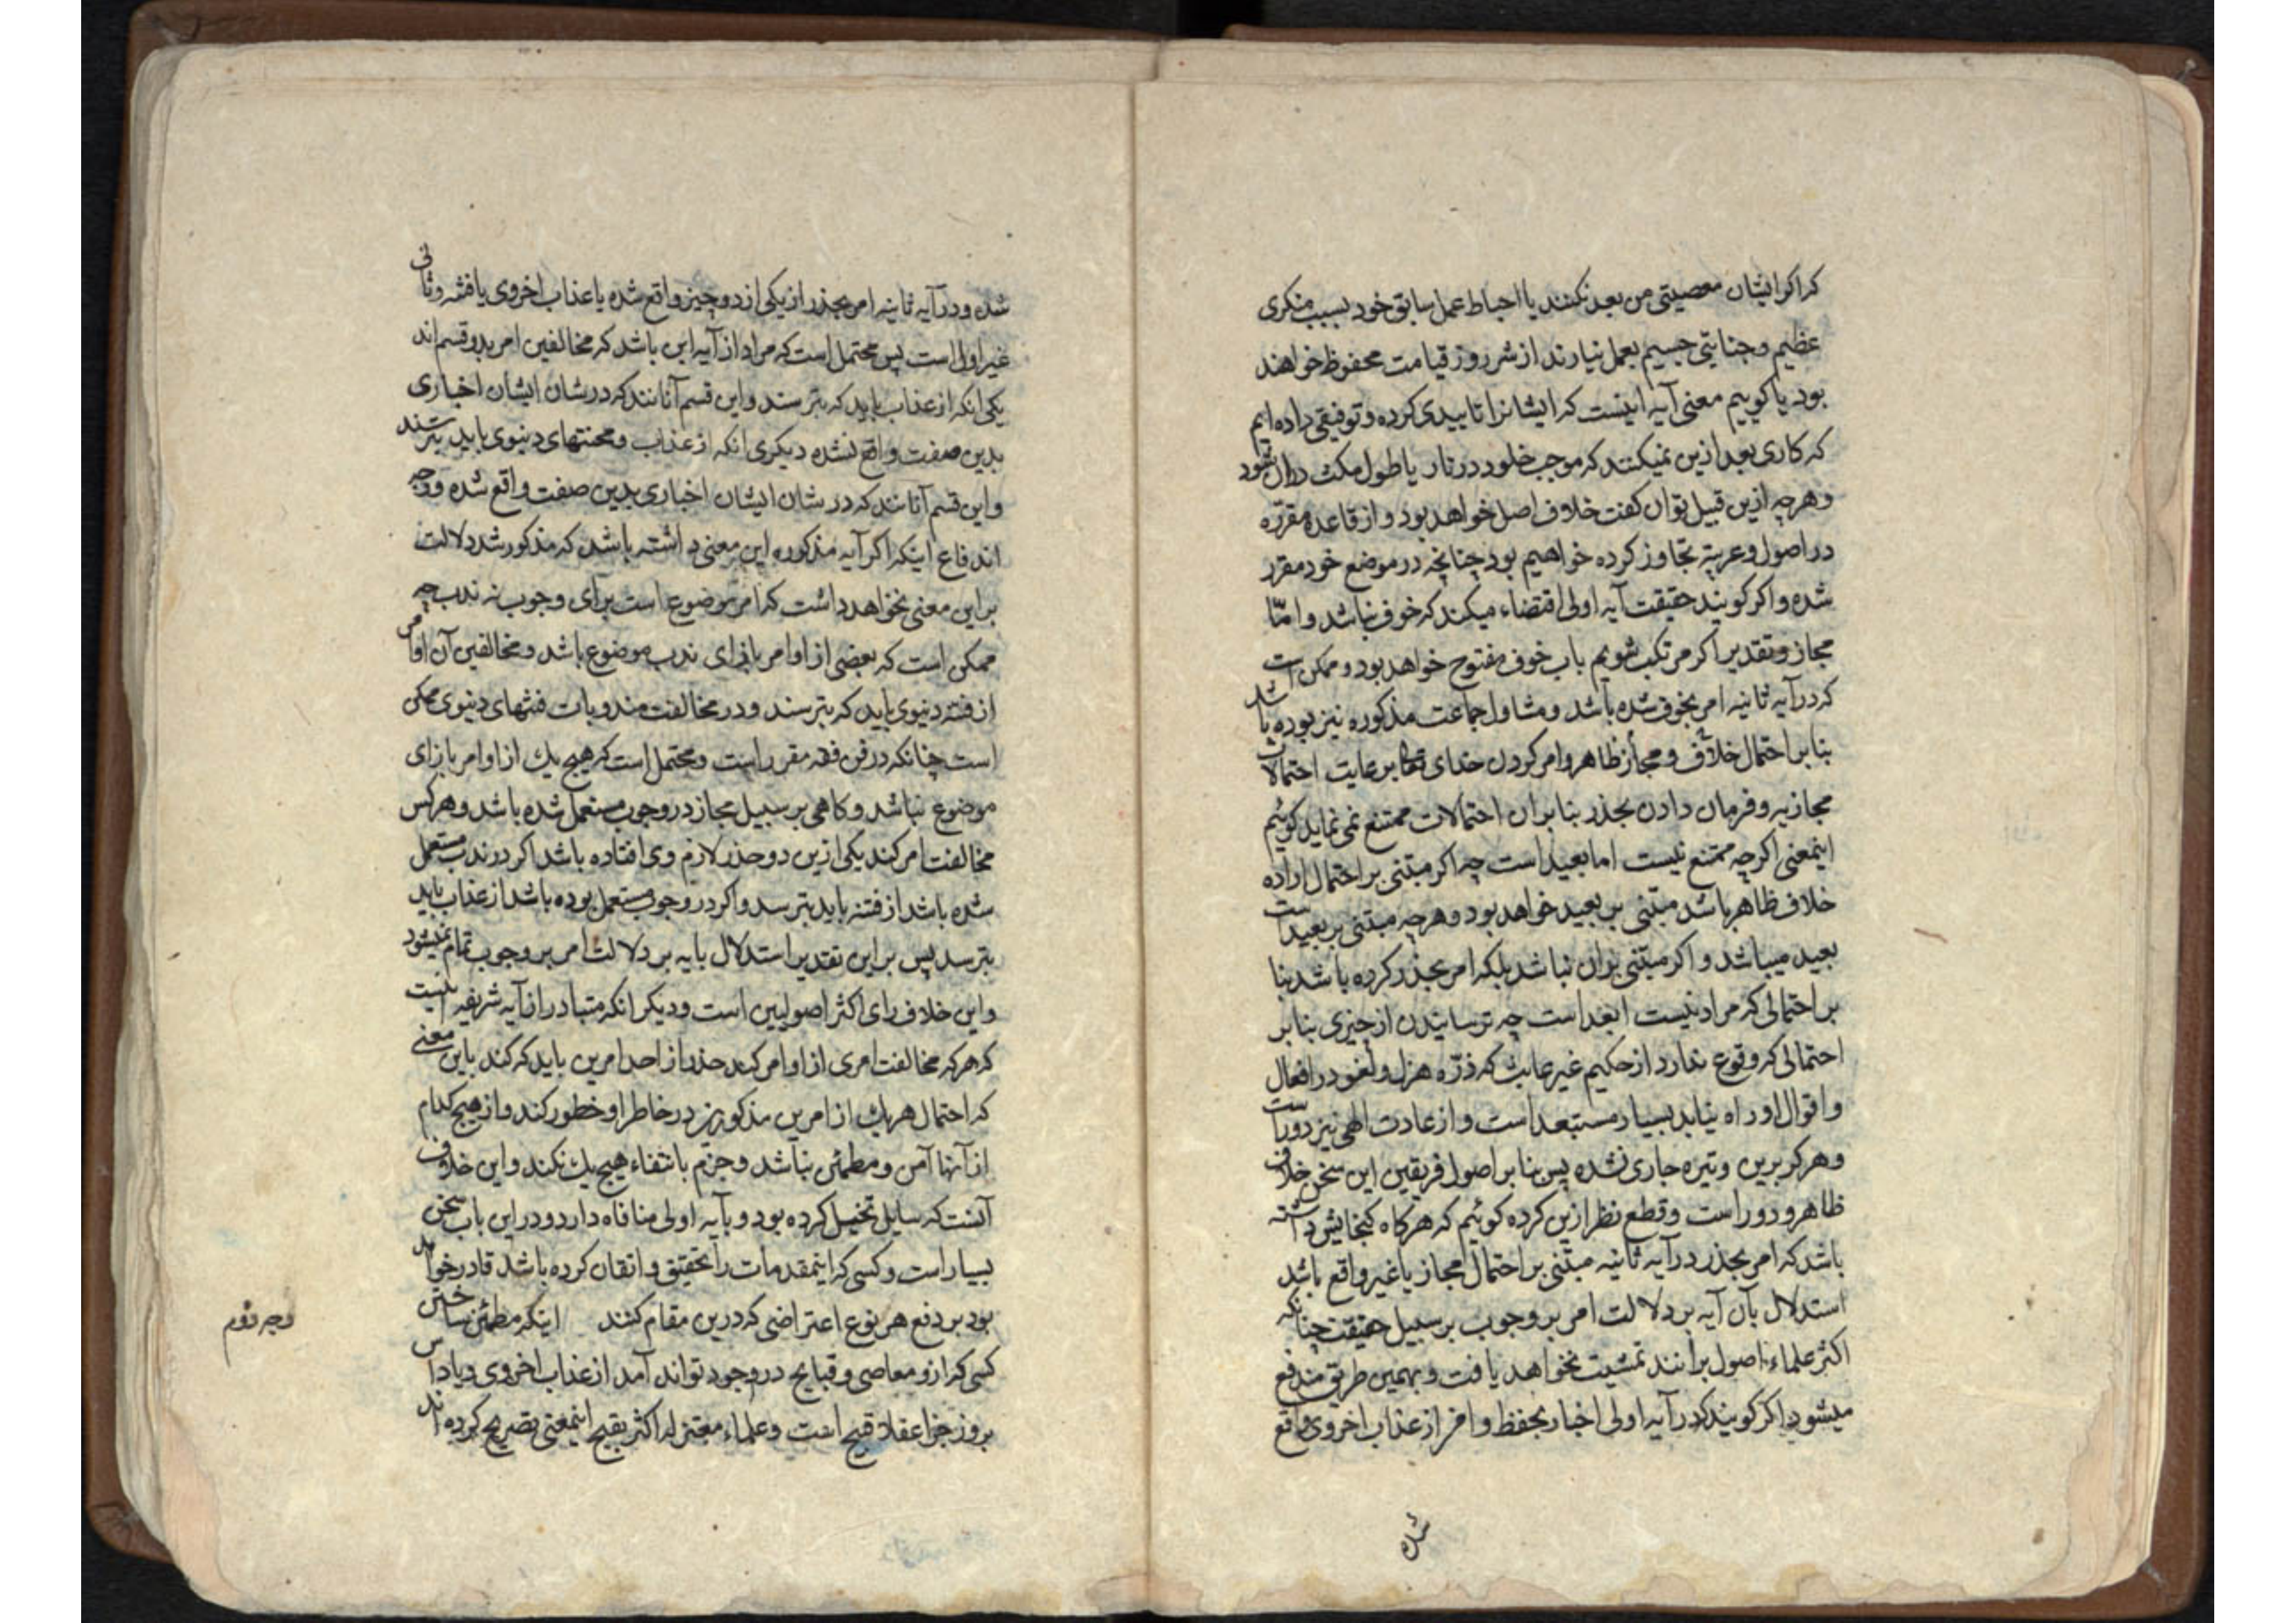 که اکر ایشان معصیتی من بعد نکنند یا احباط عمل سابق خود بسبب منکری
عظیم و جنایتی جسیم بعمل نیارند از شر روز قیامت محفوظ خواهند
بود یا کوییم معنی آیه اینست که ایشانرا تاییدی کرده و توفیقی داده ایم
که کاری بعد ازین نمیکنند که موجب خلود در نار یا طول مکث در آن شود
و هرچه ازین قبیل توان کفت خلاف اصل خواهد بود و از قاعده مقرره
در اصول و عربیه تجاوز کرده خواهیم بود چنانچه در موضع خود مقرر
شده و اکر کویند حقیقت آیه اولی اقتضاء میکند که خوف نباشد و امّا
مجاز و تقدیر اکر مرتکب شویم باب خوف مفتوح خواهد بود و ممکن است
که در آیه ثانیه امر بخوف شده باشد و مشاول جماعت مذکوره نیز بوده باشد
بنا بر احتمال خلاف و مجاز ظاهر و امر کردن خدای تعالی برعایت احتمالات
مجازیه و فرمان دادن بحذر بنا بران احتمالات ممتنع نمی نماید کوئیم
اینمعنی اکرچه ممتنع نیست اما بعید است چه اکر مبتنی بر احتمال اراده
خلاف ظاهر باشد مبتنی بر بعید خواهد بود و هرچه مبتنی بر بعید است
بعید میباشد و اکر مبتنی بران نباشد بلکه امر بحذر کرده باشد بنا
بر احتمالی که مراد نیست ابعد است چه ترسانیدن از چیزی بنا بر
احتمالی که وقوع ندارد از حکیم غیر عابث که ذرّه هزل و لغو در افعال
و اقوال او راه نیابد بسیار مستبعد است و از عادت الهی نیز دور است
و هرکز برین وتیره جاری نشده پس بنا بر اصول فریقین این سخن خلاف
ظاهر و دور است و قطع نظر ازین کرده کوئیم که هرکاه کنجایش داشته
باشد که امر بحذر در آیه ثانیه مبتنی بر احتمال مجاز یا غیر واقع باشد
استدلال بآن آیه بر دلالت امر بر وجوب بر سبیل حقیقت چنانکه
اکثر علماء اصول برانند تمشیت نخواهد یافت و بهمین طریق مندفع
میشود اکر کویند که در آیه اولی اخبار بحفظ و افر از عذاب اخروی واقع
شده
شده و در آیه ثانیه امر بحذر از یکی از دو چیز واقع شده یا عذاب اخروی یا فتنه و ثانی
غیر اول است پس محتمل است که مراد از آیه این باشد که مخالفین امر بدو قسم اند
یکی انکه از عذاب باید که بترسند و این قسم آنانند که در شان ایشان اخباری
بدین صفت واقع نشده دیکری انکه از عذاب و محنتهای دنیوی باید بترسند
و این قسم آنانند که در شان ایشان اخباری بدین صفت واقع شده و وجه
اندفاع اینکه اکر آیه مذکوره این معنی داشته باشد که مذکور شد دلالت
بر این معنی نخواهد داشت که امر موضوع است برای وجوب نه ندب چه
ممکن است که بعضی از اوامر بازای ندب موضوع باشد و مخالفین آن اوامر
از فتنه دنیوی باید که بترسند و در مخالفت مندوبات فتنهای دنیوی ممکن
است چنانکه در فن فقه مقرر است و محتمل است که هیچ یك از اوامر بازای
موضوع نباشد و کاهی بر سبیل مجاز در وجوب مستعمل شده باشد و هرکس
مخالفت امر کند یکی ازین دو حذر لازم وی افتاده باشد اکر در ندب مستعمل
شده باشد از فتنه باید بترسد و اکر در وجوب مستعمل بوده باشد از عذاب باید
بترسد پس بر این تقدیر استدلال بایه بر دلالت امر بر وجوب تمام نمیشود
و این خلاف رای اکثر اصولیین است و دیکر انکه متبادر از آیه شریفه اینست
که هرکه مخالفت امری از اوامر کند حذر از احد امرین باید که کند باین معنی
که احتمال هر یك از امرین مذکورین در خاطر او خطور کند و از هیچ کدام
از آنها آمن و مطمئن نباشد و جزم بانتفاء هیچ یك نکند و این خلاف
آنست که سایل تخیل کرده بود و بآیه اولی منافاه دارد و در این باب سخن
بسیار است و کسی که اینمقدمات را تحقیق و اتقان کرده باشد قادر خواهد
بود بر دفع هر نوع اعتراضی که درین مقام کنند اینکه مطمئن ساختن
وجه دوم
کسی که ازو معاصی و قبایح در وجود تواند آمد از عذاب اخروی و پاداش
بروز جزا عقلا قبیح است و علماء معتزله اکثر بقبح اینمعنی تصریح کرده اند